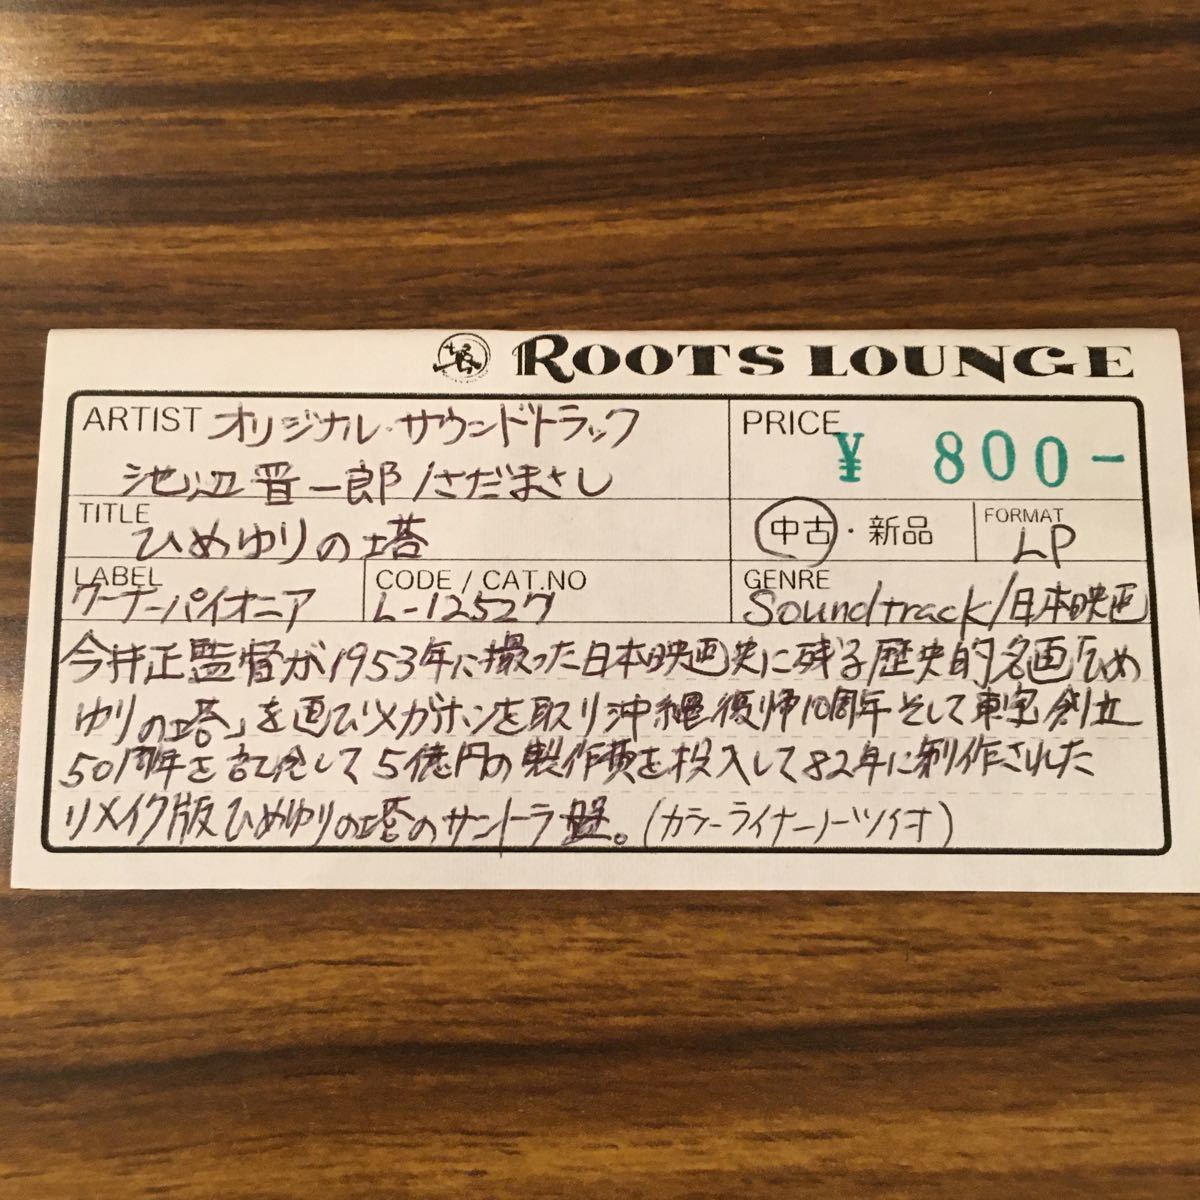 ROOTS LOUNGE
ARTIST オリジナル・サウンドトラック
池辺晋一郎/さだまさし
PRICE ¥800-
TITLE ひめゆりの塔
中古・新品
FORMAT LP
LABEL ワーナーパイオニア
CODE / CAT.NO L-12527
GENRE Soundtrack/日本映画
今井正監督が1953年に撮った日本映画史に残る歴史的名画「ひめ
ゆりの塔」を再びメガホンを取り沖縄復帰10周年そして東宝創立
50周年を記念して5億円の製作費を投入して82年に制作された
リメイク版ひめゆりの塔のサントラ盤。(カラーライナーノーツ付)